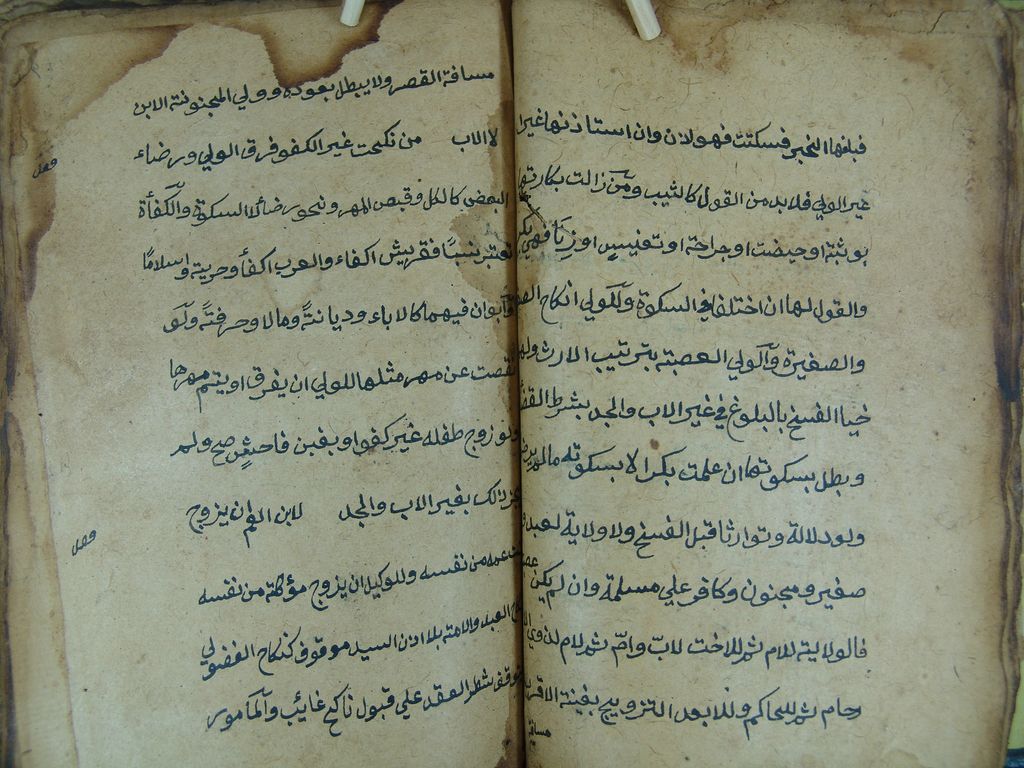 فبلغها الخبر فسكتت فهو لاذن وان استاذنها غير
غير الولي فلا بد من القول كالثيب ومن زالت بكارتها
بوثبة او حيضت او جراحة او تعنيس او زنا فهي بكر
والقول لها ان اختلفا في السكوة وللولي انكاح الصغير
والصغيرة والولي العصبة بترتيب الارث ولهما
خيا الفسخ بالبلوغ في غير الاب والجد بشرط القضا
وبطل بسكوتها ان علمت بكرا لا بسكوته مالم يرض
ولو دلالة وتوارثا قبل الفسخ ولا ولاية لعبد و
صغير ومجنون وكافر علي مسلمة وان لم يكن عصبة
فالولاية للام ثم للاخت لاب وام ثم لام لذوي الا
رحام ثم للحاكم وللابعد التزويج بغيبة الاقرب
مسافة
مسافة القصر ولا يبطل بعوده وولي المجنونة الابن
لا الاب من نكحت غير الكفو فرق الولي ورضاء
فصل
البعض كالكل وقبض المهر ونحوه رضا لا السكوة والكفأة
تعتبر نسبًا فقريش اكفاء والعرب اكفأ وحرية واسلامًا
وابوان فيهما كالاباء وديانةً ومالا وحرفتًة ولو
نقصت عن مهر مثلها للولي ان يفرق او يتم مهرها
ولو زوج طفله غير كفو او بغبن فاحش صح ولم
يجز ذالك بغير الاب والجد لابن العم ان يزوج
فصل
بنت عمه من نفسه وللوكيل ان يزوج مؤكلته من نفسه
ونكاح العبد والامة بلا اذن السيد موقوف كنكاح الفضولي
ويتوقف شطر العقد علي قبول ناكح غايب والمأمور